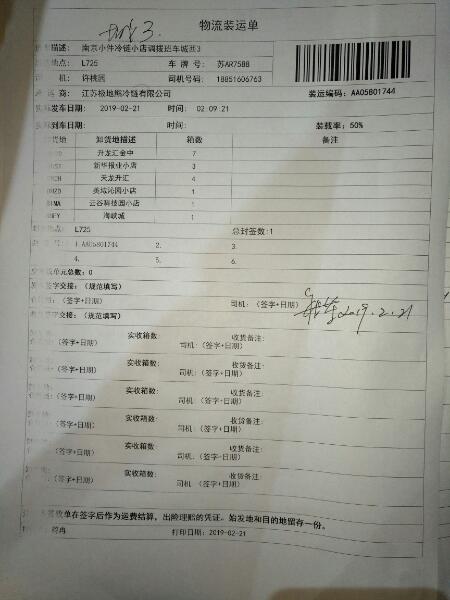 物流装运单
描述: 南京小件冷链小店调拨班车城西3
地点: L725 车 牌 号: 苏AR7588
司 机: 许桃园 司机号码: 18851606763
运 商: 江苏极地熊冷链有限公司 装运编码: AA05801744
发车日期: 2019-02-21 时间: 02:09:21
到车日期: 时间: 装载率: 50%
货地 卸货地描述 箱数 备注
升龙汇金中 7
新华报业小店 3
天龙升汇 4
美域沁园小店 1
云谷科技园小店 1
海峡城 1
地点: L725 总封签数:1
号: 1.AA05801744 2. 3.
4. 5. 6.
单元总数: 0
签字交接: (规范填写)
(签字+日期) 司机: (签字+日期) 2019.2.21
签字交接: (规范填写)
实收箱数: 收货备注:
(签字+日期) 司机: (签字+日期)
实收箱数: 收货备注:
(签字+日期) 司机: (签字+日期)
实收箱数: 收货备注:
(签字+日期) 司机: (签字+日期)
实收箱数: 收货备注:
(签字+日期) 司机: (签字+日期)
实收箱数: 收货备注:
(签字+日期) 司机: (签字+日期)
收单在签字后作为运费结算, 出险理赔的凭证, 始发地和目的地留存一份。
打印日期: 2019-02-21